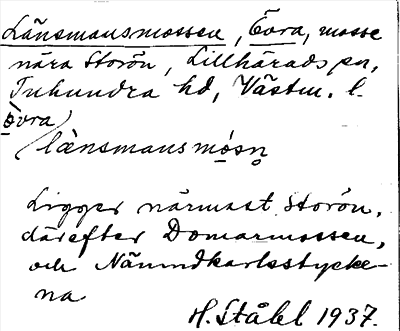 Länsmansmossen, Övra, mosse
nära Storön, Lillhärads sn,
Tuhundra hd, Västm. l.
òvra
lænsmansmósn̥
Ligger närmast Storön,
därefter Domarmossen,
och Nämndkarlsstycke-
na
H. Ståhl 1937.